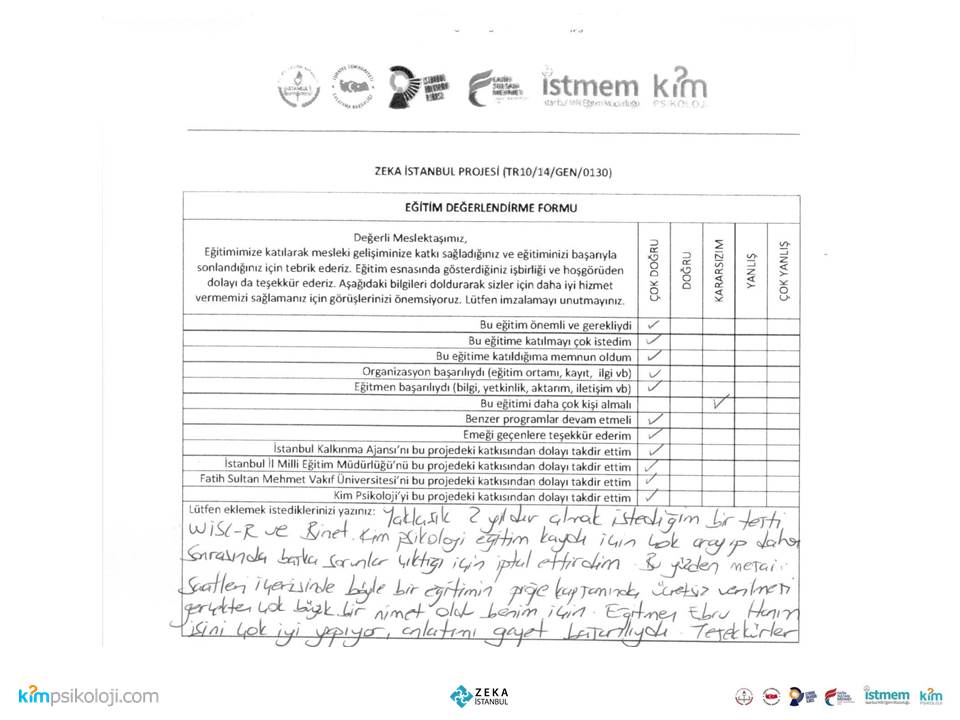 istmem
İstanbul Milli Eğitim Müdürlüğü
kim
PSİKOLOJİ
ZEKA İSTANBUL PROJESİ (TR10/14/GEN/0130)
EĞİTİM DEĞERLENDİRME FORMU
Değerli Meslektaşımız,
Eğitimimize katılarak mesleki gelişiminize katkı sağladığınız ve eğitiminizi başarıyla
sonlandığınız için tebrik ederiz. Eğitim esnasında gösterdiğiniz işbirliği ve hoşgörüden
dolayı da teşekkür ederiz. Aşağıdaki bilgileri doldurarak sizler için daha iyi hizmet
vermemizi sağlamanız için görüşlerinizi önemsiyoruz. Lütfen imzalamayı unutmayınız.
ÇOK DOĞRU
DOĞRU
KARARSIZIM
YANLIŞ
ÇOK YANLIŞ
Bu eğitim önemli ve gerekliydi ✓
Bu eğitime katılmayı çok istedim ✓
Bu eğitime katıldığıma memnun oldum ✓
Organizasyon başarılıydı (eğitim ortamı, kayıt, ilgi vb) ✓
Eğitmen başarılıydı (bilgi, yetkinlik, aktarım, iletişim vb) ✓
Bu eğitimi daha çok kişi almalı ✓
Benzer programlar devam etmeli ✓
Emeği geçenlere teşekkür ederim ✓
İstanbul Kalkınma Ajansı'nı bu projedeki katkısından dolayı takdir ettim ✓
İstanbul İl Milli Eğitim Müdürlüğü'nü bu projedeki katkısından dolayı takdir ettim ✓
Fatih Sultan Mehmet Vakıf Üniversitesi'ni bu projedeki katkısından dolayı takdir ettim ✓
Kim Psikoloji'yi bu projedeki katkısından dolayı takdir ettim ✓
Lütfen eklemek istediklerinizi yazınız: Yaklaşık 2 yıldır almak istediğim bir testi
WISC-R ve Binet. Kim psikoloji eğitim kaydı için çok arayıp daha
sonrasında başka sorunlar çıktığı için iptal ettirdim. Bu yüzden mesai
saatleri içerisinde böyle bir eğitimin proje kapsamında ücretsiz verilmesi
gerçekten çok büyük bir nimet oldu benim için. Eğitmen Ebru Hanım
işini çok iyi yapıyor, anlatımı gayet başarılıydı. Teşekkürler
kimpsikoloji.com
ZEKA
İSTANBUL
istmem
kim
PSİKOLOJİ